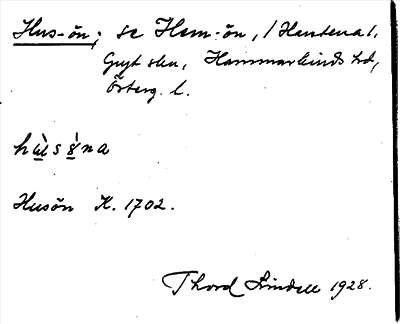 Hus-ön; se Hem-ön, /Hentena/,
Gryt skn, Hammarkinds hd,
Österg. l.
hùsö̀na
Husön K. 1702.
Thord Lindell 1928.